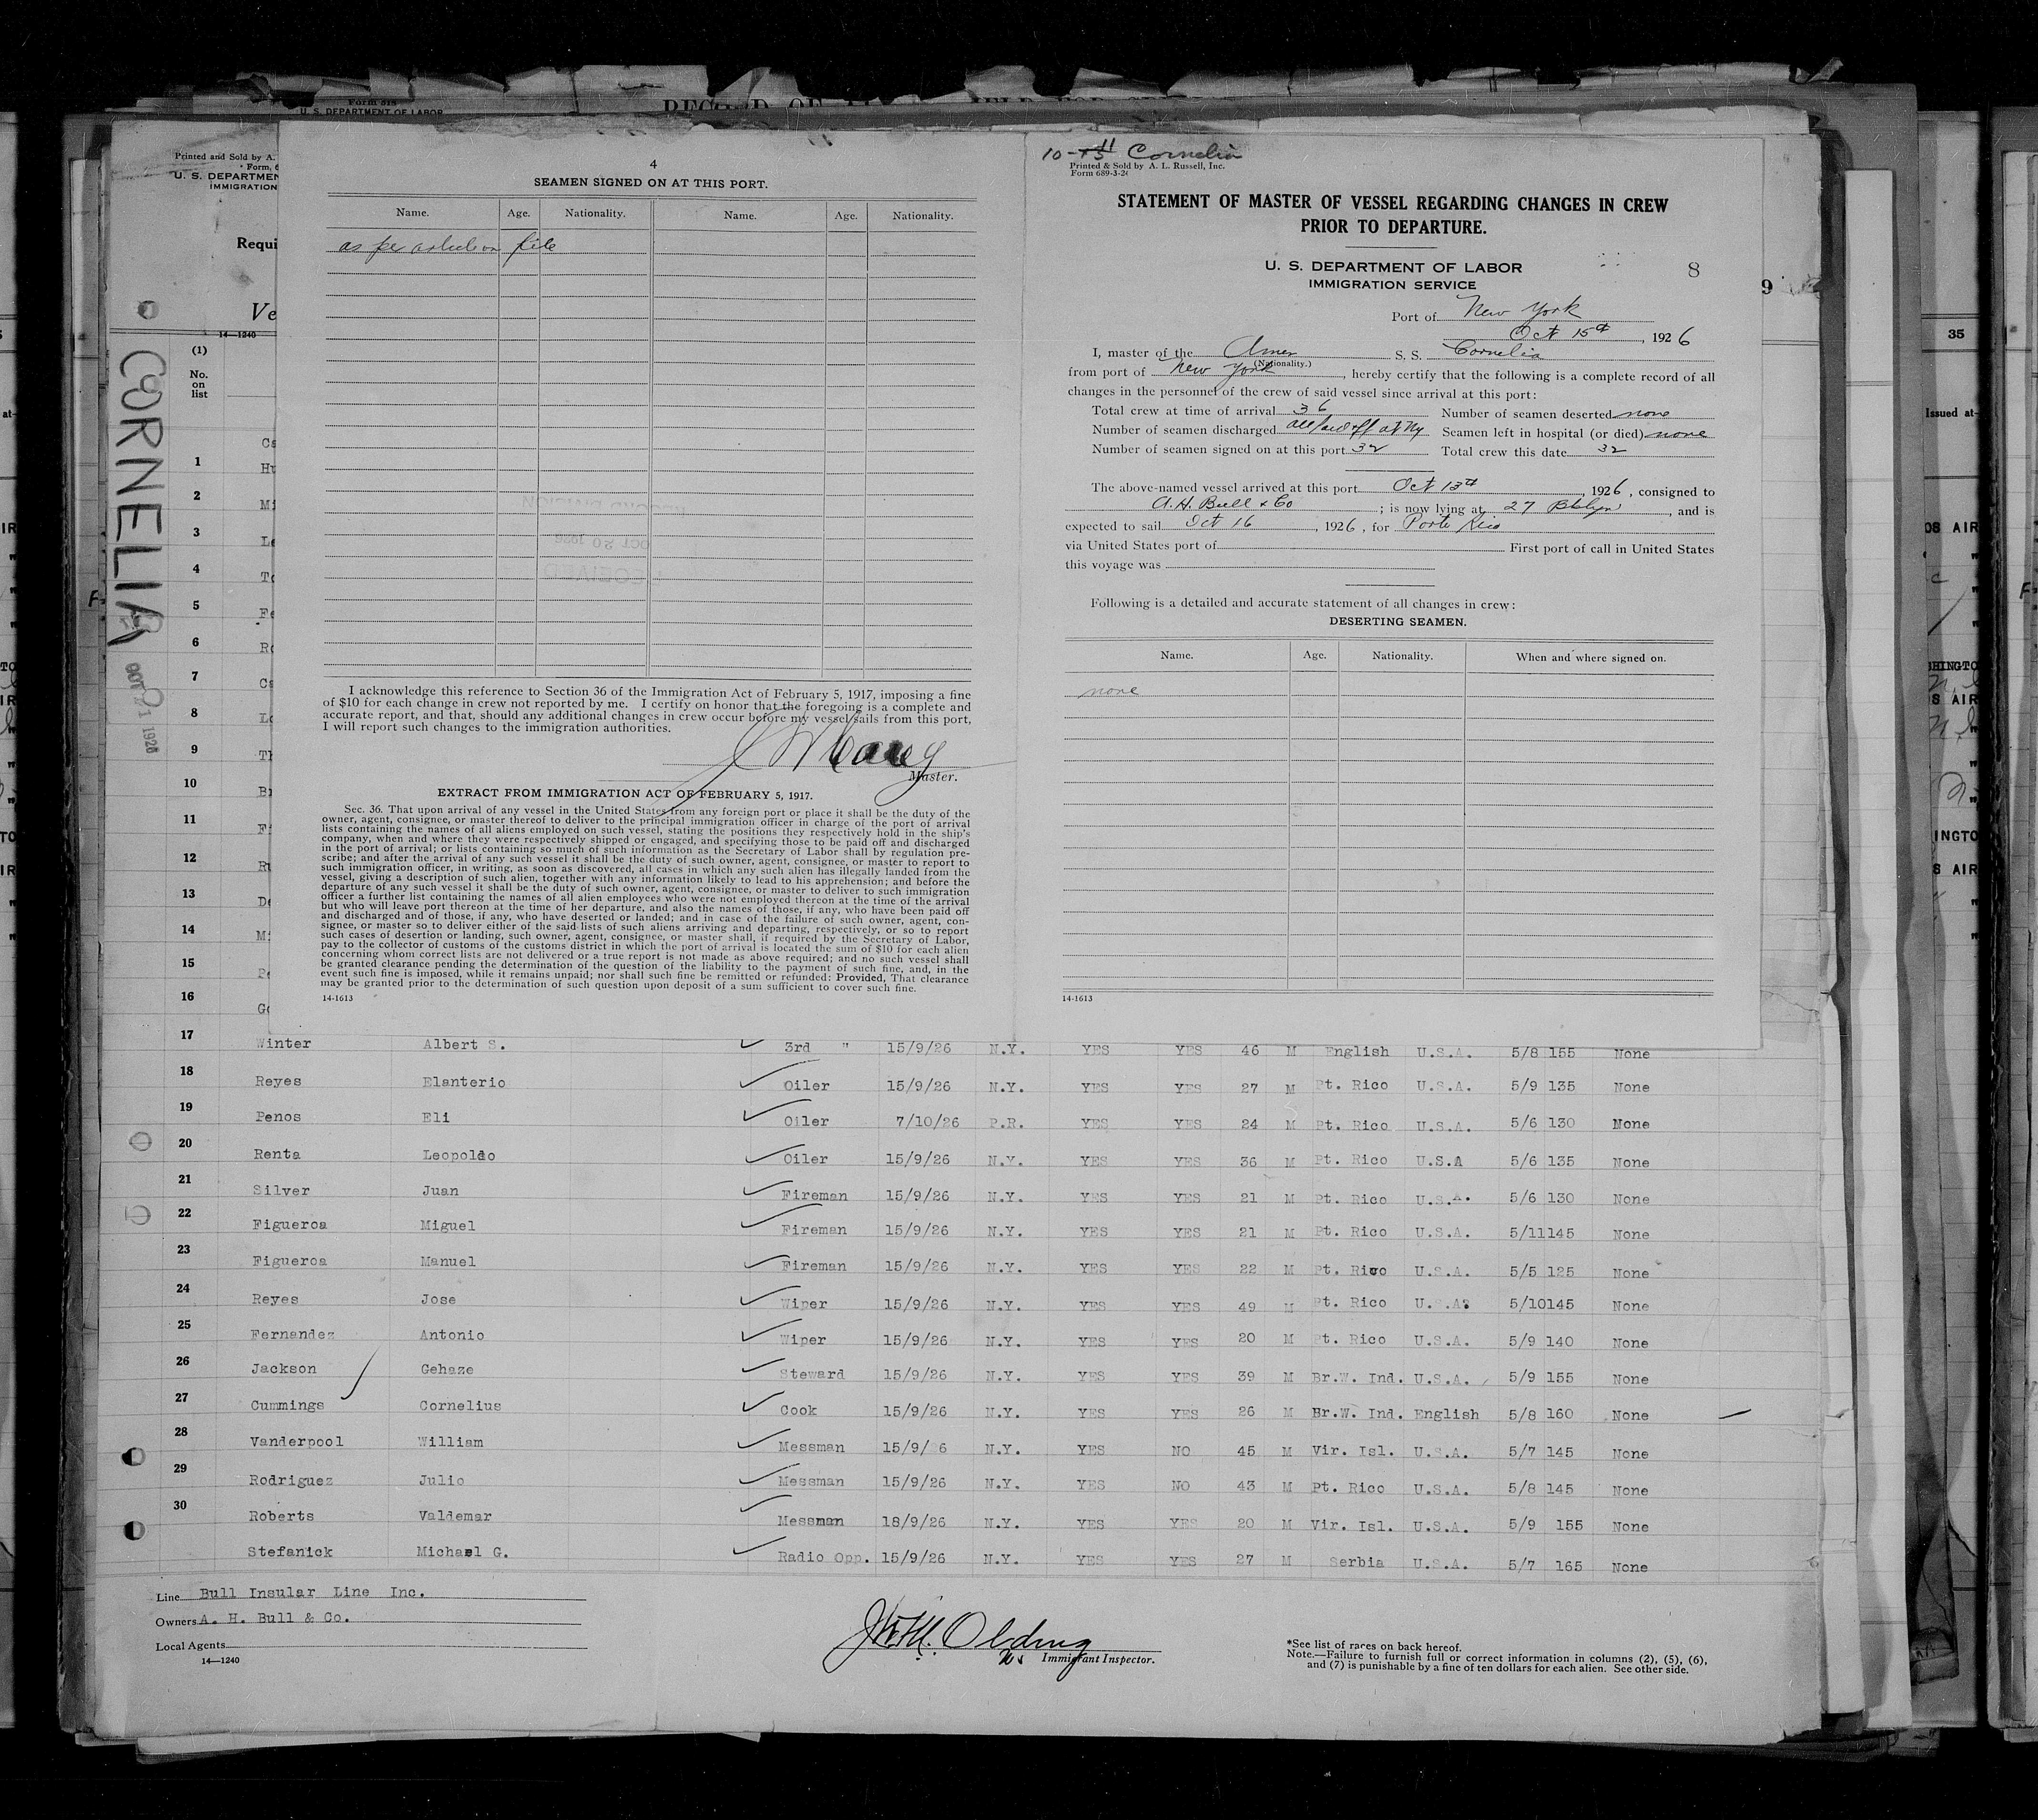 Form 515
U. S. DEPARTMENT OF LABOR
Printed and Sold by A.
Form, 6
U. S. DEPARTMEN
IMMIGRATION
Requi
Ve
14—1240
(1)
No.
on
list
CORNELIA
OCT 21 1926
4
SEAMEN SIGNED ON AT THIS PORT.
Name. Age. Nationality. Name. Age. Nationality.
as per file
I acknowledge this reference to Section 36 of the Immigration Act of February 5, 1917, imposing a fine
of $10 for each change in crew not reported by me. I certify on honor that the foregoing is a complete and
accurate report, and that, should any additional changes in crew occur before my vessel sails from this port,
I will report such changes to the immigration authorities.
Master.
EXTRACT FROM IMMIGRATION ACT OF FEBRUARY 5, 1917.
Sec. 36. That upon arrival of any vessel in the United States from any foreign port or place it shall be the duty of the
owner, agent, consignee, or master thereof to deliver to the principal immigration officer in charge of the port of arrival
lists containing the names of all aliens employed on such vessel, stating the positions they respectively hold in the ship's
company, when and where they were respectively shipped or engaged, and specifying those to be paid off and discharged
in the port of arrival; or lists containing so much of such information as the Secretary of Labor shall by regulation pre-
scribe; and after the arrival of any such vessel it shall be the duty of such owner, agent, consignee, or master to report to
such immigration officer, in writing, as soon as discovered, all cases in which any such alien has illegally landed from the
vessel, giving a description of such alien, together with any information likely to lead to his apprehension; and before the
departure of any such vessel it shall be the duty of such owner, agent, consignee, or master to deliver to such immigration
officer a further list containing the names of all alien employees who were not employed thereon at the time of the arrival
but who will leave port thereon at the time of her departure, and also the names of those, if any, who have been paid off
and discharged and of those, if any, who have deserted or landed; and in case of the failure of such owner, agent, con-
signee, or master so to deliver either of the said lists of such aliens arriving and departing, respectively, or so to report
such cases of desertion or landing, such owner, agent, consignee, or master shall, if required by the Secretary of Labor,
pay to the collector of customs of the customs district in which the port of arrival is located the sum of $10 for each alien
concerning whom correct lists are not delivered or a true report is not made as above required; and no such vessel shall
be granted clearance pending the determination of the question of the liability to the payment of such fine, and, in the
event such fine is imposed, while it remains unpaid; nor shall such fine be remitted or refunded: Provided, That clearance
may be granted prior to the determination of such question upon deposit of a sum sufficient to cover such fine.
14-1613
10- 11 Cornelia
Printed & Sold by A. L. Russell, Inc.
Form 689-3-26
STATEMENT OF MASTER OF VESSEL REGARDING CHANGES IN CREW
PRIOR TO DEPARTURE.
U. S. DEPARTMENT OF LABOR
8
IMMIGRATION SERVICE
9
Port of New York
Oct 15th, 1926
I, master of the Amer S. S. Cornelia
(Nationality.)
from port of New York, hereby certify that the following is a complete record of all
changes in the personnel of the crew of said vessel since arrival at this port:
Total crew at time of arrival 36 Number of seamen deserted none
Number of seamen discharged all paid off at Ny Seamen left in hospital (or died) none
Number of seamen signed on at this port 32 Total crew this date 32
The above-named vessel arrived at this port Oct 13th, 1926, consigned to
A. H. Bull & Co; is now lying at 27 Bklyn, and is
expected to sail Oct 16, 1926, for Porto Rico
via United States port of First port of call in United States
this voyage was
Following is a detailed and accurate statement of all changes in crew:
DESERTING SEAMEN.
Name. Age. Nationality. When and where signed on.
none
14-1613
1
2
3
4
5
6
7
8
9
10
11
12
13
14
15
16
17 Winter Albert S. 3rd " 15/9/26 N.Y. YES YES 46 M English U.S.A. 5/8 155 None
18 Reyes Elanterio Oiler 15/9/26 N.Y. YES YES 27 M Pt. Rico U.S.A. 5/9 135 None
19 Penos Eli Oiler 7/10/26 P.R. YES YES 24 M Pt. Rico U.S.A. 5/6 130 None
20 Renta Leopoldo Oiler 15/9/26 N.Y. YES YES 36 M Pt. Rico U.S.A 5/6 135 None
21 Silver Juan Fireman 15/9/26 N.Y. YES YES 21 M Pt. Rico U.S.A. 5/6 130 None
22 Figueroa Miguel Fireman 15/9/26 N.Y. YES YES 21 M Pt. Rico U.S.A. 5/11 145 None
23 Figueroa Manuel Fireman 15/9/26 N.Y. YES YES 22 M Pt. Rico U.S.A. 5/5 125 None
24 Reyes Jose Wiper 15/9/26 N.Y. YES YES 49 M Pt. Rico U.S.A. 5/10 145 None
25 Fernandez Antonio Wiper 15/9/26 N.Y. YES YES 20 M Pt. Rico U.S.A. 5/9 140 None
26 Jackson Gehaze Steward 15/9/26 N.Y. YES YES 39 M Br.W. Ind. U.S.A. 5/9 155 None
27 Cummings Cornelius Cook 15/9/26 N.Y. YES YES 26 M Br.W. Ind. English 5/8 160 None
28 Vanderpool William Messman 15/9/26 N.Y. YES NO 45 M Vir. Isl. U.S.A. 5/7 145 None
29 Rodriguez Julio Messman 15/9/26 N.Y. YES NO 43 M Pt. Rico U.S.A. 5/8 145 None
30 Roberts Valdemar Messman 18/9/26 N.Y. YES YES 20 M Vir. Isl. U.S.A. 5/9 155 None
Stefanick Michael G. Radio Opp. 15/9/26 N.Y. YES YES 27 M Serbia U.S.A. 5/7 165 None
Line Bull Insular Line Inc.
Owners A. H. Bull & Co.
Local Agents
14—1240
Olding
Immigrant Inspector.
*See list of races on back hereof.
Note.—Failure to furnish full or correct information in columns (2), (5), (6),
and (7) is punishable by a fine of ten dollars for each alien. See other side.
35
Issued at-